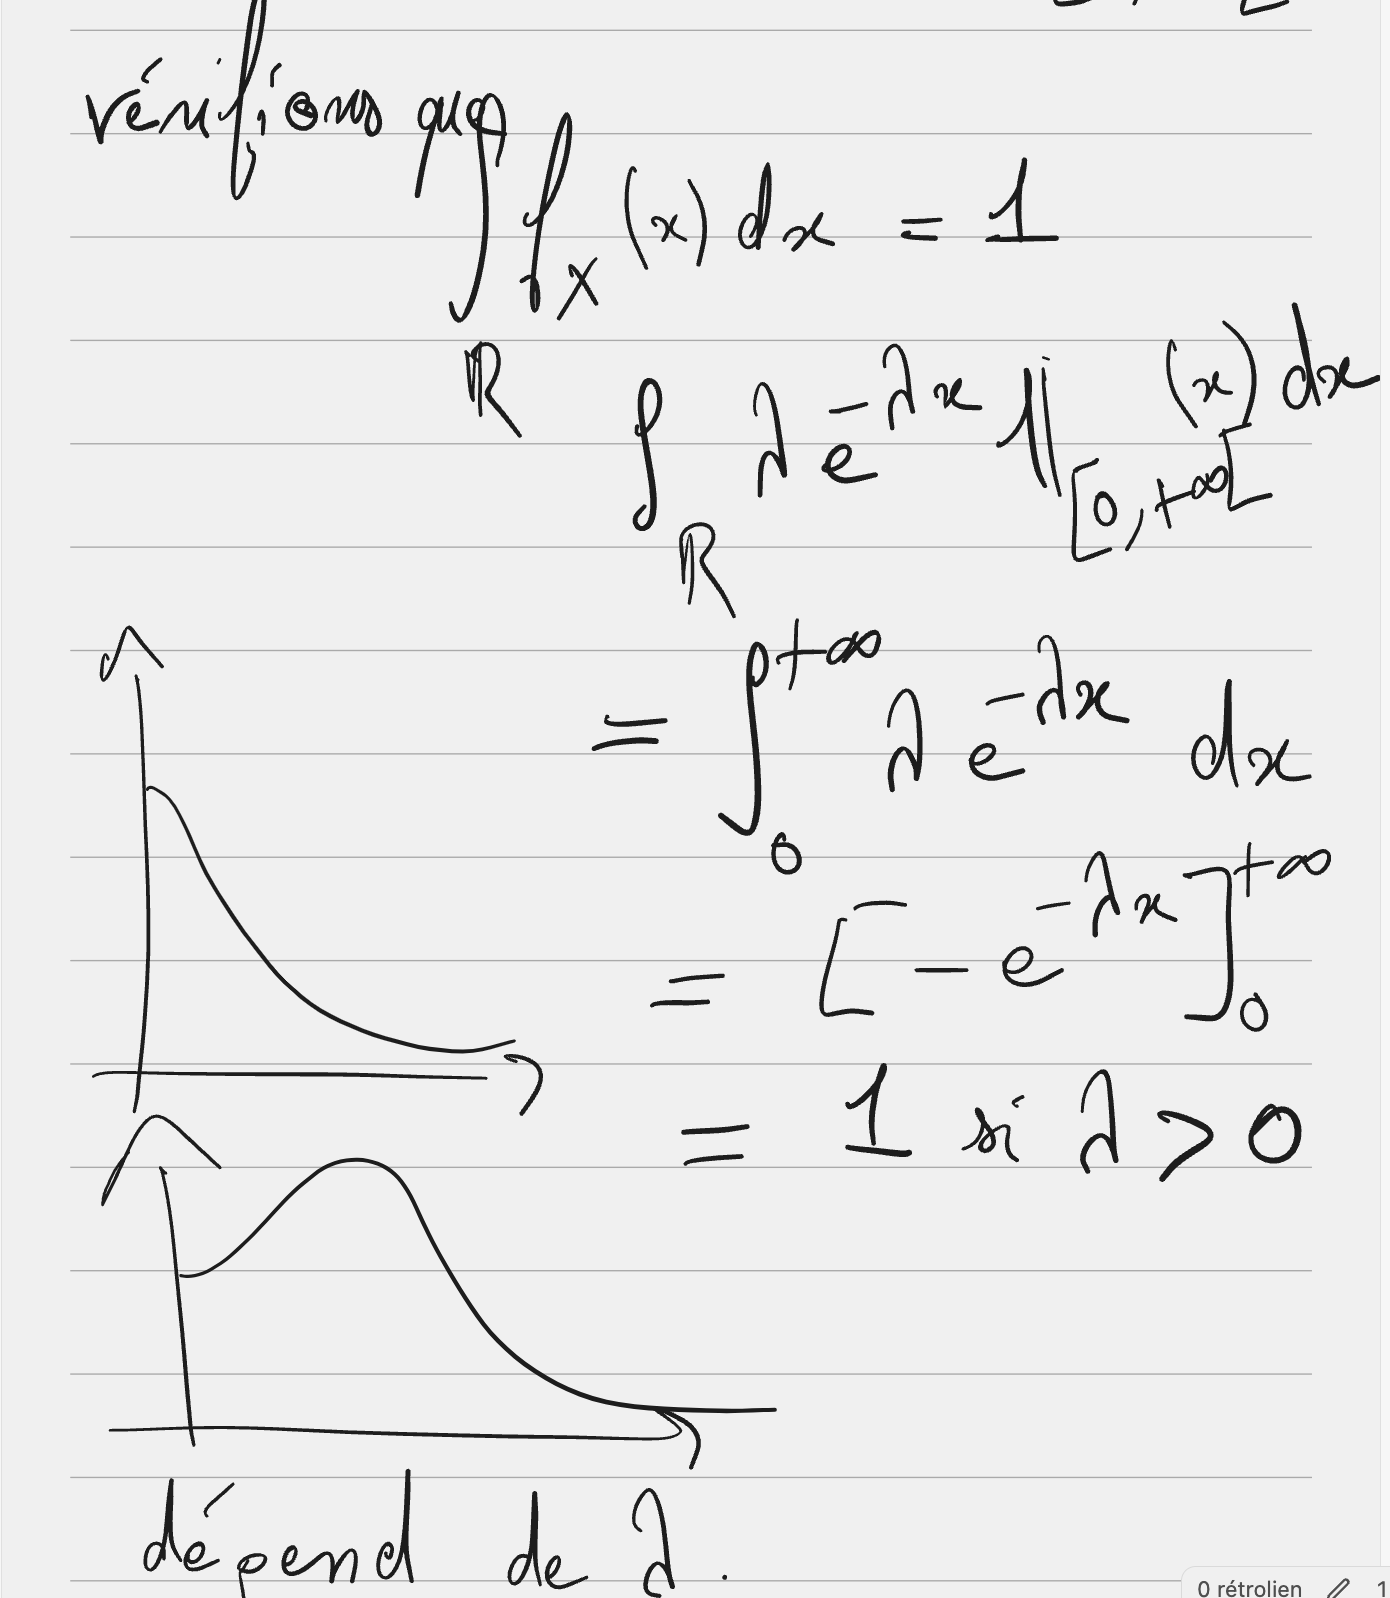 vérifions que
∫_ℝ f_X (x) dx = 1
∫_ℝ λ e^{-λx} 𝟙_{[0,+∞[} (x) dx
= ∫_0^{+∞} λ e^{-λx} dx
= [ - e^{-λx} ]_0^{+∞}
= 1 si λ > 0
dépend de λ.
0 rétrolien 1